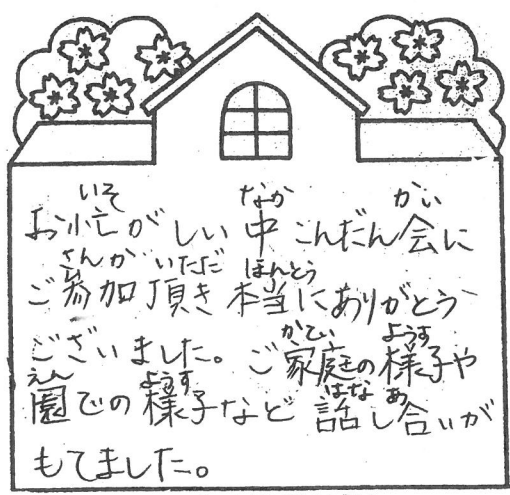 お忙がしい中こんだん会に
ご参加頂き本当にありがとう
ございました。ご家庭の様子や
園での様子など話し合いが
もてました。